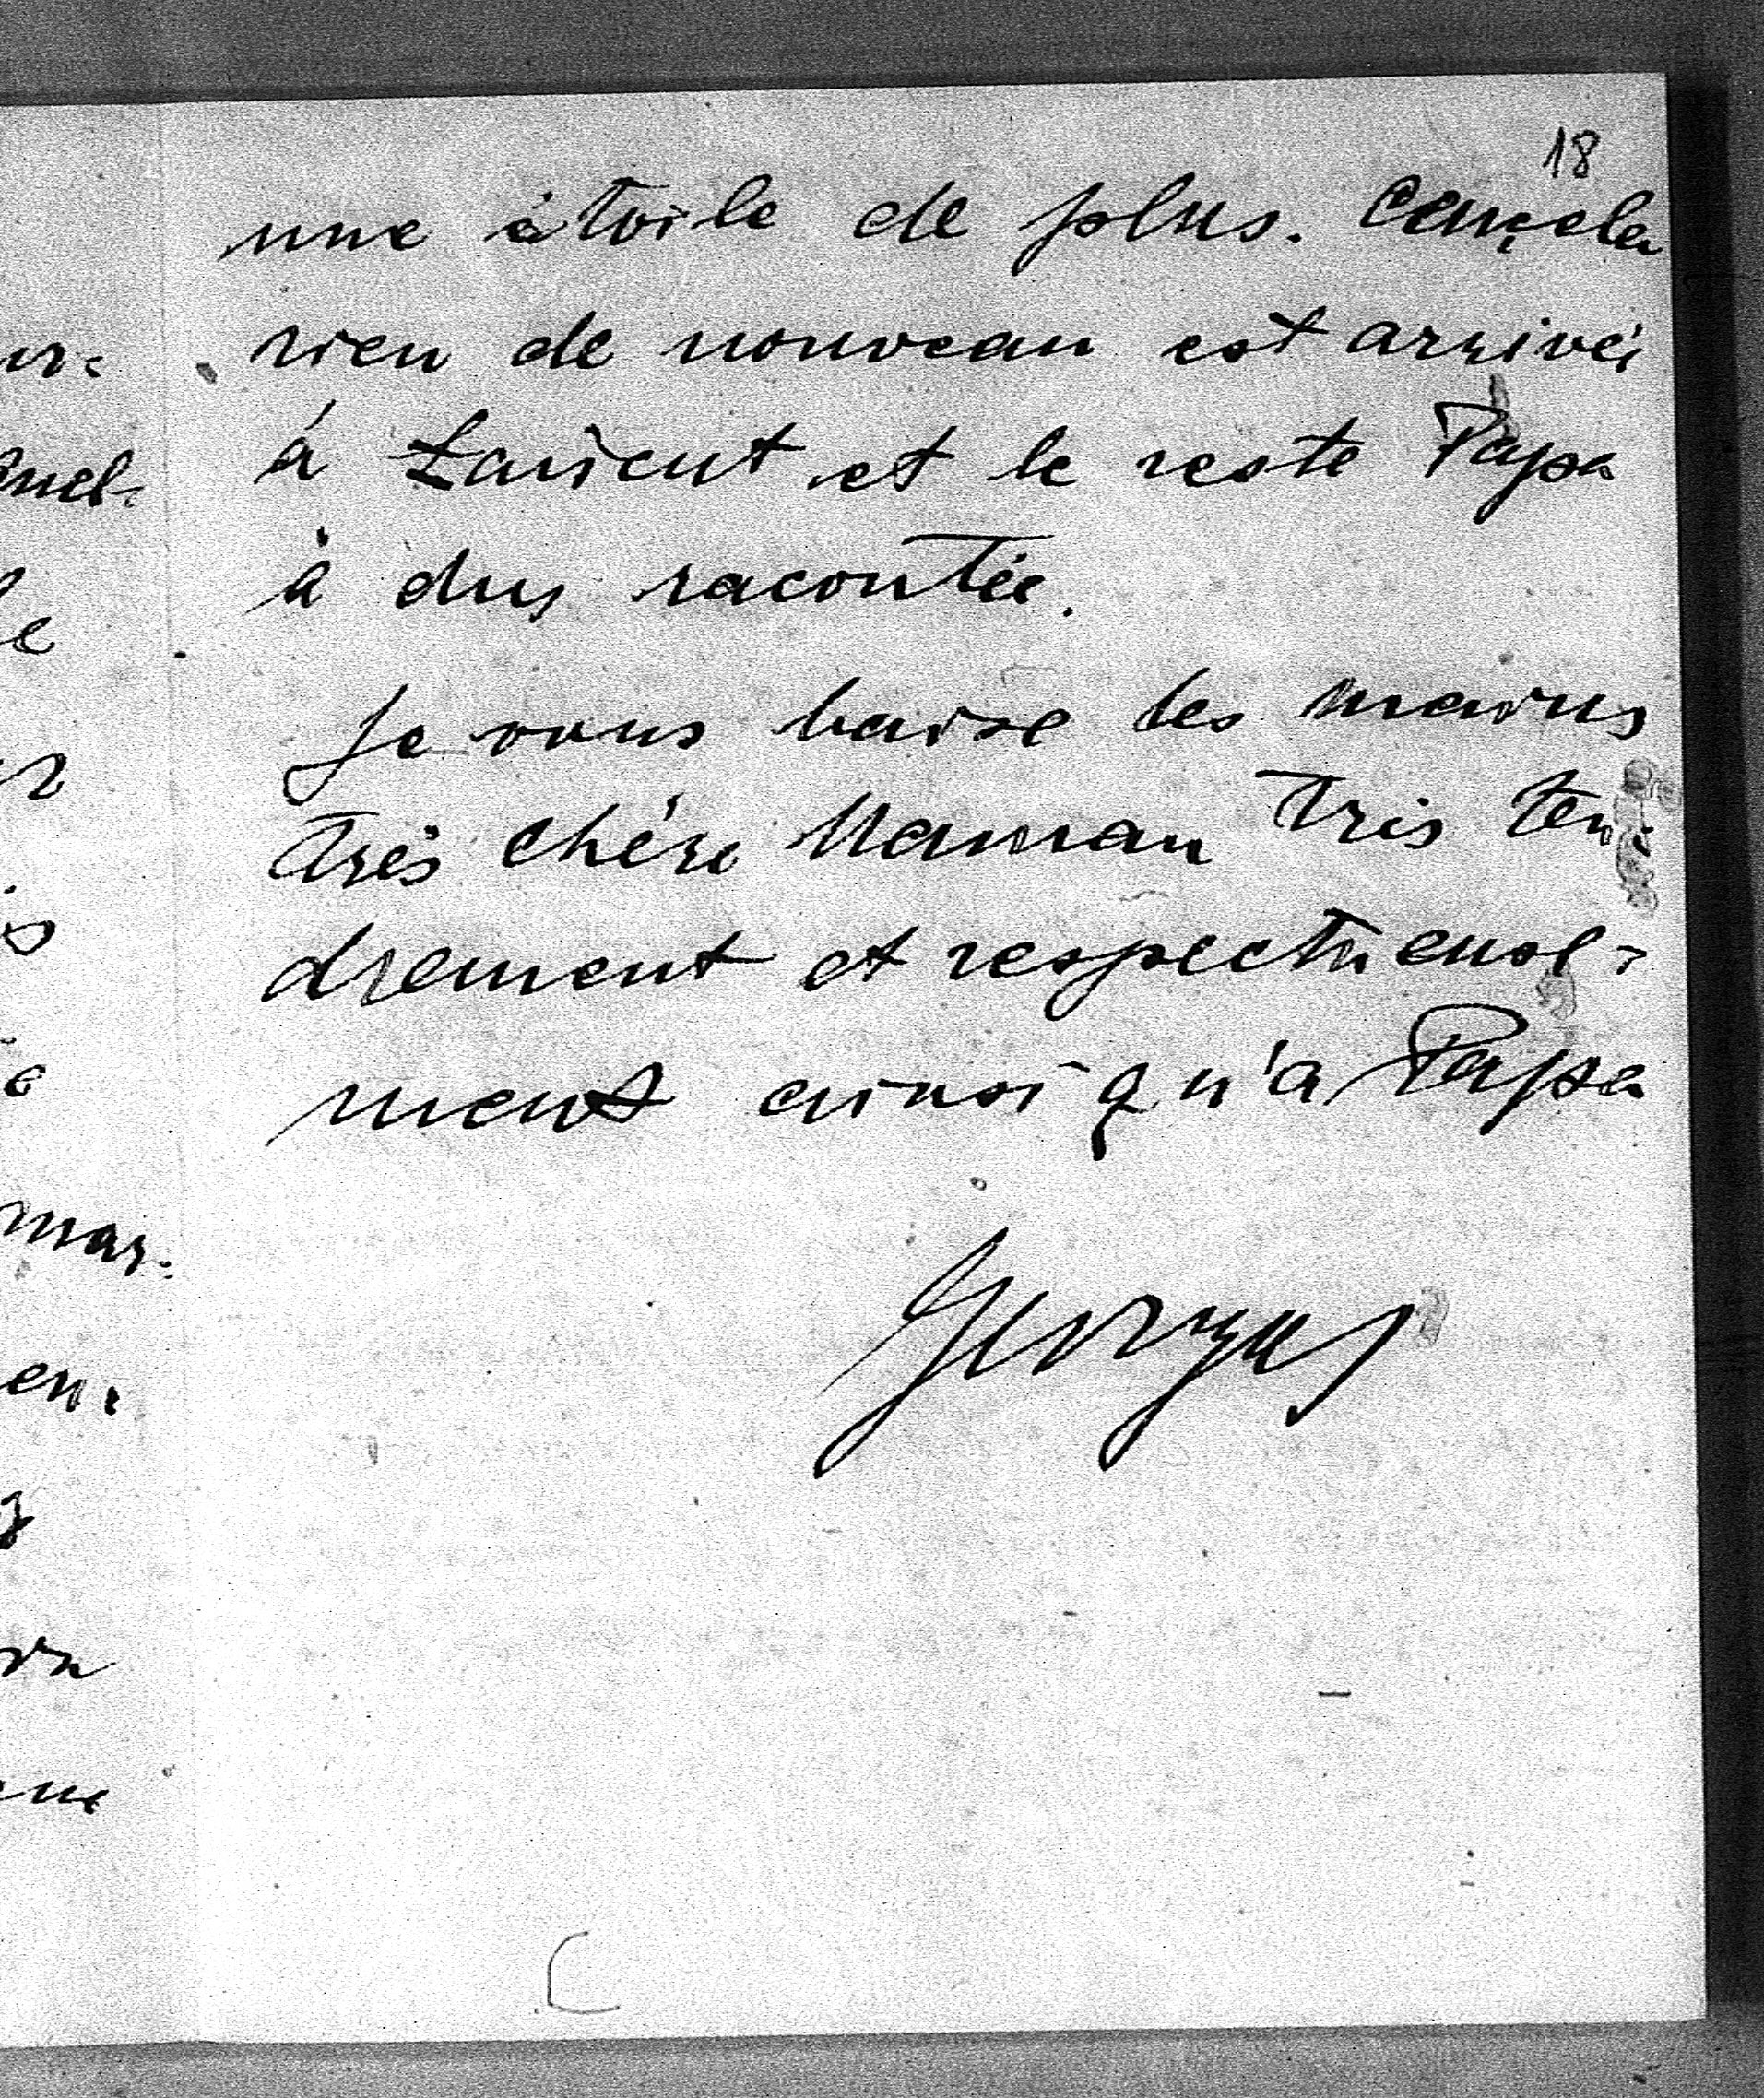 18
une étoile de plus.
rien de nouveau est arrivée
à Larient et le reste Papa
à dus racontée.
Je vous baise les mains
très chère Maman très ten-
drement et respectueuse-
ment ainsi qu'a Papa
Georges